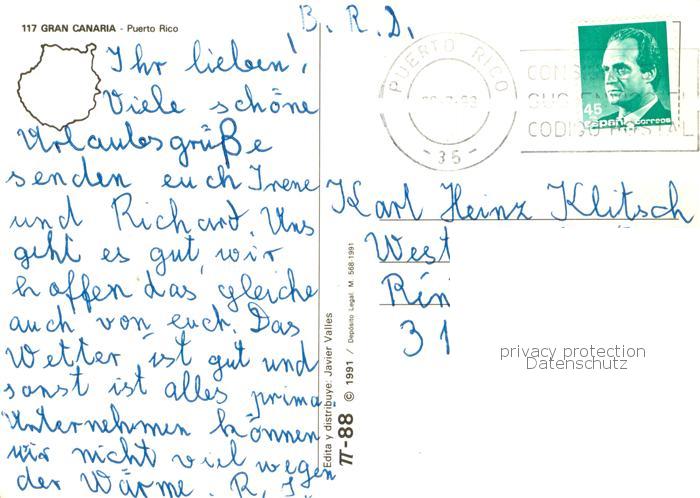 117 GRAN CANARIA - Puerto Rico
Ihr lieben!
Viele schöne
Urlaubsgrüße
senden euch Irene
und Richard. Uns
geht es gut, wir
hoffen das gleiche
auch von euch. Das
Wetter ist gut und
sonst ist alles prima
Unternehmen können
wir nicht viel wegen
der Wärme. R, I
Edita y distribuye: Javier Valles
π-88 © 1991 / Depósito Legal. M. 568-1991
B. R. D.
PUERTO RICO
-35-
CODIGO POSTAL
45
España correos
Karl Heinz Klitsch
West
Rin
31
privacy protection
Datenschutz